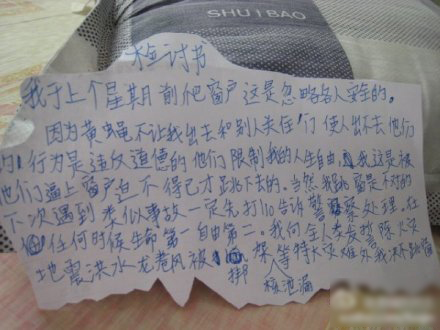 SHUIBAO
检讨书
我于上个星期 前爬窗户这是忽略各人安全的。
因为黄蝇不让我出去和别人关住门 使人出不去他们
的行为是违反道德的他们限制我的人生自由,我这是被
他们逼上窗户迫不得已才跳下去的。当然我跳窗是不对的
下次遇到类似事故一定先打110告诉警察处理。在
任何时候生命第一自由第二。我向全人类反 除火灾
地震洪水龙卷风被绑架等特大灾难外我决不跳窗
核泄漏